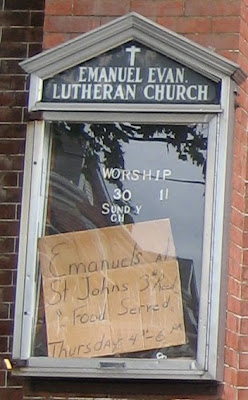 EMANUEL EVAN.
LUTHERAN CHURCH
WORSHIP
30 11
SUND Y
GH
Emanuels At
St Johns 3rd
Food Served
Thursdays 4